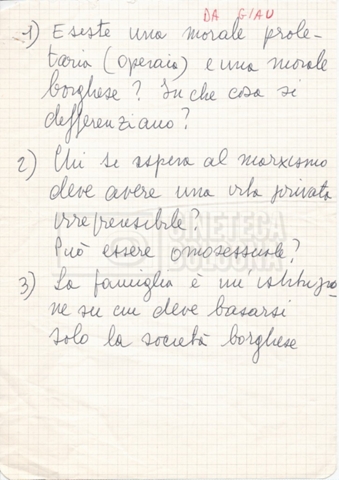 DA GIAU
1) Esiste una morale prole-
taria (operaia) e una morale
borghese? In che cosa si
differenziano?
2) Chi si ispira al marxismo
deve avere una vita privata
irreprensibile?
Può essere omosessuale?
3) La famiglia è un'istituzio-
ne su cui deve basarsi
solo la società borghese
CINETECA
BOLOGNA